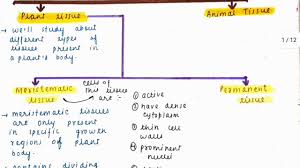 Plant tissue
Animal Tissue
→ we'll study about
different types of
tissues present in
a plant's body.
1/12
Meristematic
tissue
cells of
this tissue
are :-
① active
② have dense
cytoplasm
③ thin cell
walls
④ prominent
nuclei
Permanent
tissue
→ meristematic tissues
are only present
in specific growth
regions of plant
body.
→ contains dividing